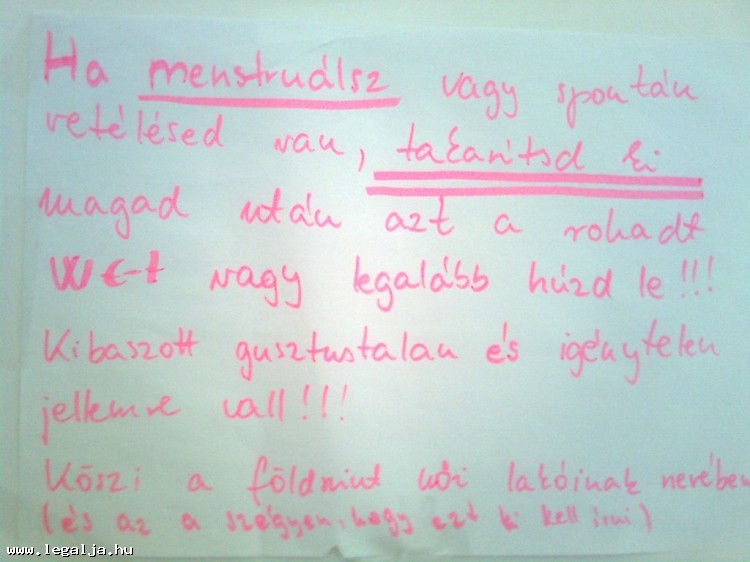 Ha menstruálsz vagy spontán
vetélésed van, takarítsd ki
magad után azt a rohadt
WC-t vagy legalább húzd le!!!
Kibaszott gusztustalan és igénytelen
jellemre vall!!!
Köszi a földszint női lakóinak nevében
(és az a szégyen, hogy ezt ki kell írni)
www.legalja.hu